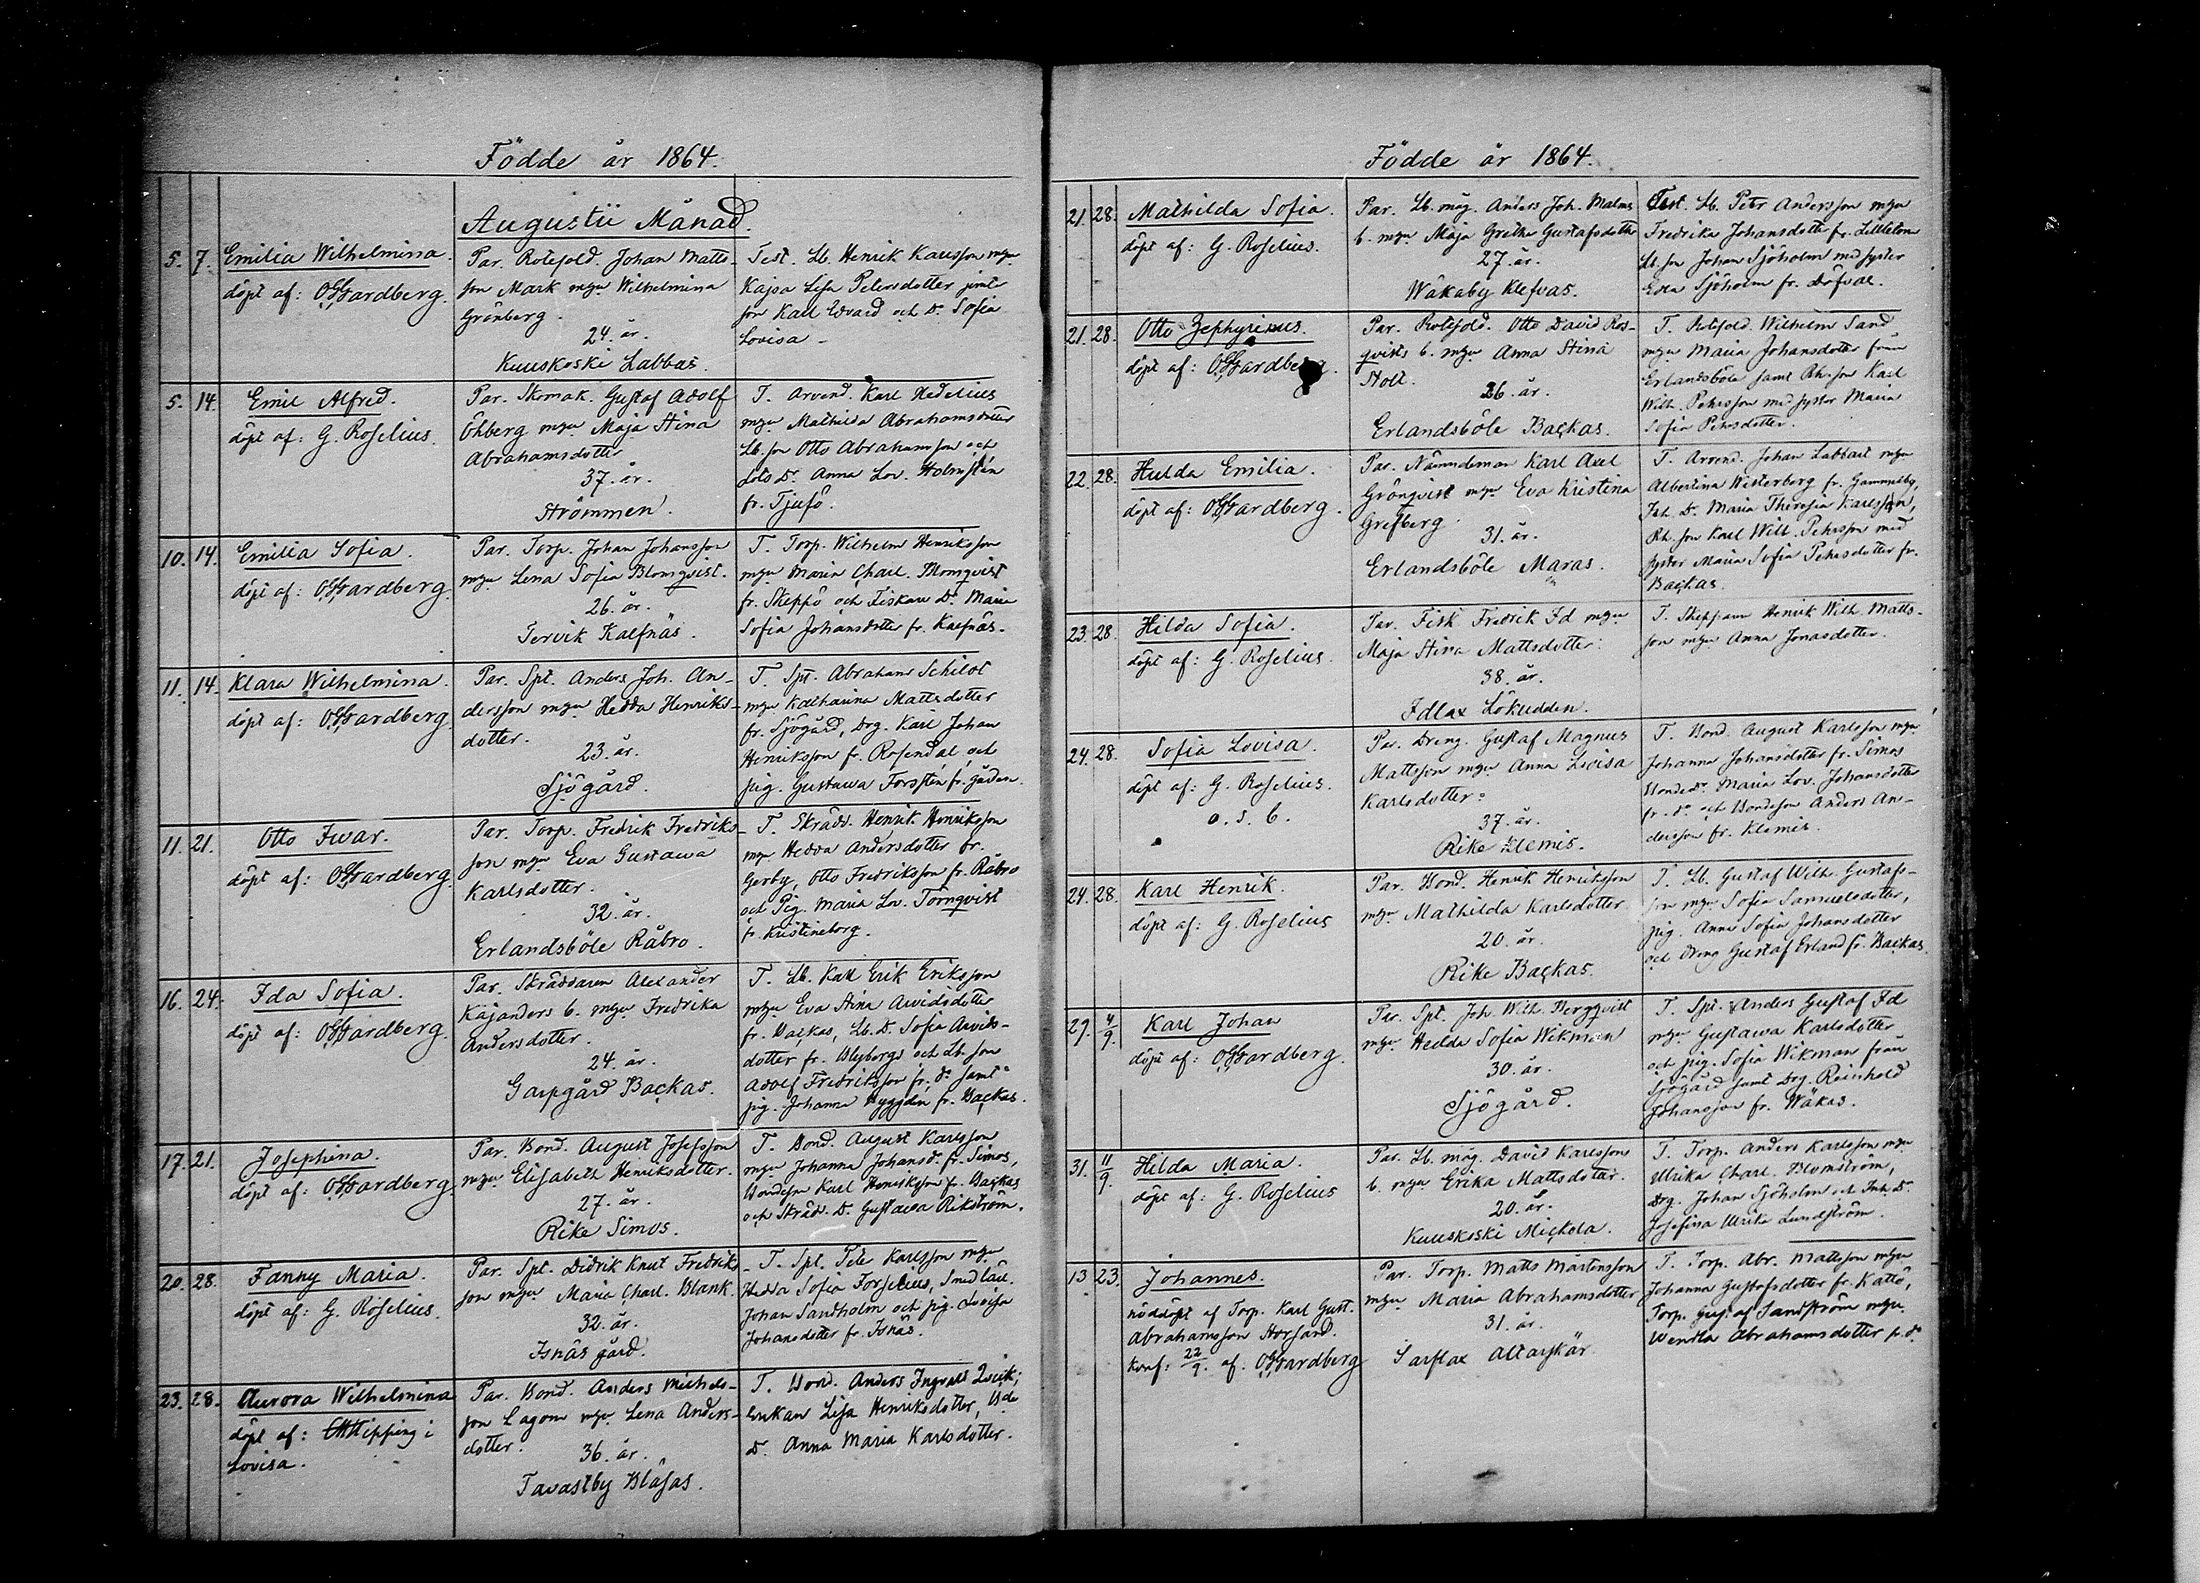 Födde år 1864.
Augustii Månad.
5. 7. Emilia Wilhelmina.
döpt af: O. Gardberg.
Par. Rotesold. Johan Matts-
son Mark mgn Wilhelmina
Grönberg.
24. år.
Kuuskoski Labbas.
Test. Lb. Henrik Karlsson mgn
Kajsa Lisa Petersdotter jemte
son Karl Edvard och Dr. Sofia
Lovisa -
5. 14. Emil Alfred.
döpt af: G. Roselius.
Par. Skomak. Gustaf Adolf
Öhberg mgn Maja Stina
Abrahamsdotter
37. år.
Strömmen.
T. Arvend. Karl Hedelius
mgn Mathilda Abrahamsdotter
Lb. son Otto Abrahamsson och
Lots Dr. Anna Lov. Holmstén
fr. Tjufö.
10. 14. Emilia Sofia.
döpt af: O. Gardberg.
Par. Torp. Johan Johansson
mgn Lena Sofia Blomqvist.
26. år.
Tervik Kalfnäs.
T. Torp. Wilhelm Henriksson
mgn Maria Charl. Blomqvist
fr. Skeppö och Fiskare Dr. Maria
Sofia Johansdotter fr. Kalfnäs.
11. 14. Klara Wilhelmina.
döpt af: O. Gardberg.
Par. Spt. Anders Joh. An-
dersson mgn Hedda Henriks-
dotter.
23. år.
Sjögård.
T. Spt. Abraham Schildt
mgn Katharina Mattsdotter
fr. Sjögård, Drg. Karl Johan
Henriksson fr. Rosendal, och
pig. Gustava Forstén fr. gården.
11. 21. Otto Iwar.
döpt af: O. Gardberg.
Par. Torp. Fredrik Fredriks-
son mgn Eva Gustava
Karlsdotter.
32. år.
Erlandsböle Råbro.
T. Skrädd. Henrik Henriksson
mgn Hedda Andersdotter fr.
Gerby, Otto Fredriksson fr. Råbro
och Pig. Maria Lov. Törnqvist
fr. Kristineborg.
16. 24. Ida Sofia.
döpt af: O. Gardberg.
Par. Skräddaren Alexander
Kajanders b. mgn Fredrika
Andersdotter.
24. år.
Garpgård Backas.
T. Lb. Karl Erik Eriksson
mgn Eva Stina Arvidsdotter
fr. Backas, Lb. D. Sofia Arvids-
dotter fr. Blybergs och Lb. son
Adolf Fredriksson fr. Do samt
pig. Johanna Hyggdén fr. Backas.
17. 21. Josephina.
döpt af: O. Gardberg.
Par. Bond. August Josefsson
mgn Elisabeth Henriksdotter.
27. år.
Rike Simos.
T. Bond. August Karlsson
mgn Johanna Johansd. fr. Simos,
Bondeson Karl Henriksson fr. Backas
och Skräd. D. Gustava Rikström.
20. 28. Fanny Maria.
döpt af: G. Roselius.
Par. Spt. Didrik Knut Fredriks-
son mgn Maria Charl. Blank.
32. år.
Isnäs gård.
T. Spt. Pete Karlsson mgn
Hedda Sofia Forselius, Smedlär.
Johan Sandholm och pig. Lovisa
Johansdotter fr. Isnäs.
23. 28. Aurora Wilhelmina
döpt af: Kipping i
Lovisa.
Par. Bond. Anders Michels-
son Lagom mgn Lena Anders-
dotter.
36. år.
Tavastby Blåsas.
T. Bond. Anders Ingvald Qvick,
Enkan Lisa Henriksdotter, Bde
D. Anna Maria Karlsdotter.
Födde år 1864.
21. 28. Mathilda Sofia.
döpt af: G. Roselius.
Par. Lb. måg. Anders Joh. Malms
b. mgn Maja Gretha Gustafsdotter
27. år.
Wäkaby Klefvas.
Test. Lb. Petr Andersson mgn
Fredrika Johansdotter fr. Lilleton
Lb. son Johan Sjöholm med syster
Edla Sjöholm fr. Döfvas.
21. 28. Otto Zephyrinus.
döpt af: O. Gardberg.
Par. Rotesold. Otto David Ros-
qvists b. mgn Anna Stina
Nolt.
26. år.
Erlandsböle Backas.
T. Rotesold. Wilhelm Sand
mgn Maria Johansdotter från
Erlandsböle samt Rh. son Karl
Wilh. Pehrsson med syster Maria
Sofia Pehrsdotter.
22. 28. Hulda Emilia.
döpt af: O. Gardberg.
Par. Nämndeman Karl Axel
Grönqvist mgn Eva Kristina
Grefberg.
31. år.
Erlandsböle Maras.
T. Arvend. Johan Labbart mgn
Albertina Westerberg fr. Gammelby,
Inh. D. Maria Theresia Karlsson,
Rh. son Karl Wilh. Pehrsson med
syster Maria Sofia Pehrsdotter fr.
Backas.
23. 28. Hilda Sofia.
döpt af: G. Roselius.
Par. Fisk. Fredrik Id mgn
Maja Stina Mattsdotter.
38. år.
Idlax Lökudden.
T. Skeppare Henrik Wilh. Matts-
son mgn Anna Jonasdotter.
24. 28. Sofia Lovisa.
döpt af: G. Roselius.
o. s. b.
Par. Dreng. Gustaf Magnus
Mattsson mgn Anna Lovisa
Karlsdotter:
37. år.
Rike Klemis.
T. Bond. August Karlsson mgn
Johanna Johansdotter fr. Simos
Bonded. Maria Lov. Johansdotter
fr. do och Bondeson Anders An-
dersson fr. Klemis.
24. 28. Karl Henrik.
döpt af: G. Roselius
Par. Bond. Henrik Henriksson
mgn Mathilda Karlsdotter
20. år.
Rike Backas.
T. Lb. Gustaf Wilh. Gustafs-
son mgn Sofia Samuelsdotter,
pig. Anna Sofia Johansdotter
och Dreng Gustaf Erland fr. Backas.
27. 4/9. Karl Johan
döpt af: O. Gardberg.
Par. Spt. Joh. Wilh. Bergqvist
mgn Hedda Sofia Wikman
30. år.
Sjögård.
T. Spt. Anders Gustaf Id
mgn Gustava Karlsdotter
och pig. Sofia Wikman från
Sjögård samt Drg. Reinhold
Johansson fr. Wäkas.
31. 11/9. Hilda Maria.
döpt af: G. Roselius
Par. Lb. måg. David Karlssons
b. mgn Erika Mattsdotter.
20. år.
Kuuskoski Mickola.
T. Torp. Anders Karlsson mgn
Ulrika Charl. Blomström,
Drg. Johan Sjöholm och Inh. D.
Josefina Ulrika Lundström.
13. 23. Johannes.
nöddöpt af Torp. Karl Gust.
Abrahamsson Horsand.
konf: 22/9. af. O. Gardberg
Par. Torp. Matts Mårtensson
mgn Maria Abrahamsdotter
31. år.
Sarflax Altarskär
T. Torp. Abr. Mattsson mgn
Johanna Gustafsdotter fr. Kattö,
Torp. Gust. af Sandström mgn
Wendla Abrahamsdotter fr. do